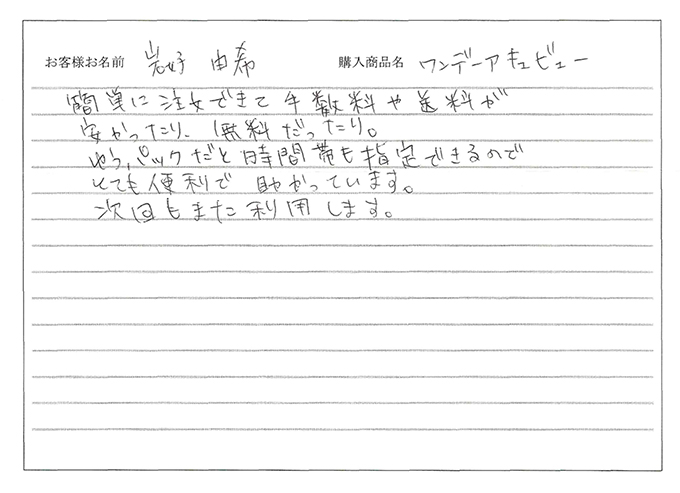 お客様お名前 岩好 由希 購入商品名 ワンデーアキュビュー
簡単に注文できて手数料や送料が
安かったり、無料だったり。
ゆうパックだと時間帯も指定できるので
とても便利で助かっています。
次回もまた利用します。